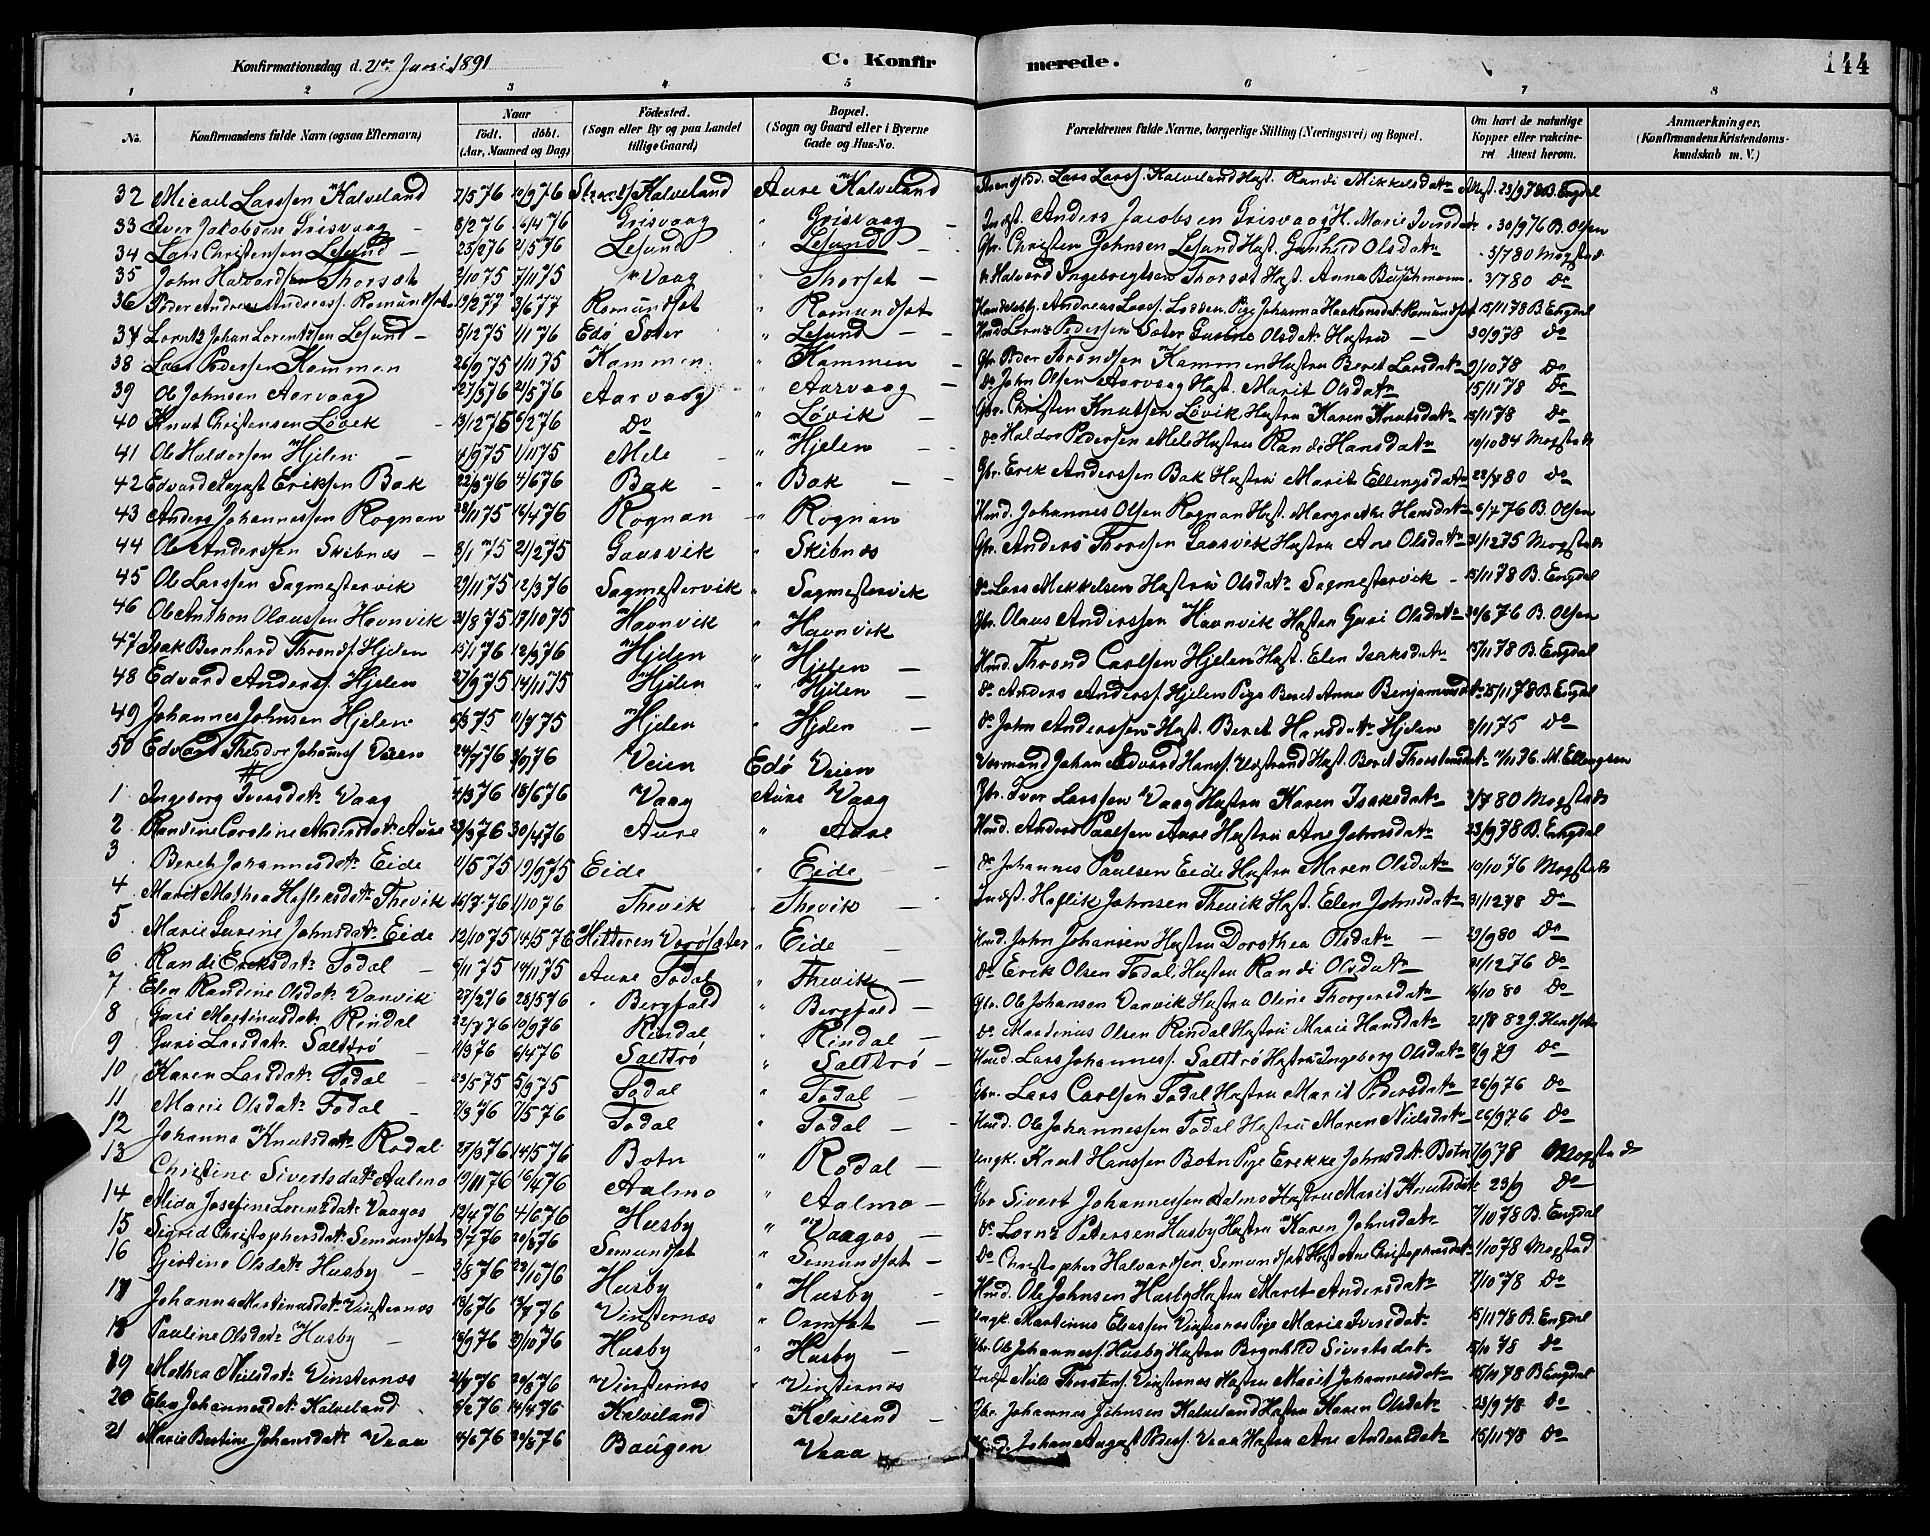 Konfirmationsdag d. 21de Juni 1891 C. Konfirmerede. 144
1 2 3 4 5 6 7 8
No. Konfirmandens fulde Navn (ogsaa Efternavn) Naar født. døbt. (Aar, Maaned og Dag) Fødested. (Sogn eller By og paa Landet tillige Gaard) Bopæl. (Sogn og Gaard eller i Byerne Gade og Hus-No. Forældrenes fulde Navne, borgerlige Stilling (Næringsvei) og Bopæl. Om havt de naturlige Kopper eller vakcineret Attest herom. Anmærkninger, (Konfirmandens Kristendomskundskab m. V.)
32 Micael Larssen Kalveland 2/5 76 12/9 76 Kalveland Aure Kalveland Lars Larss. Kalveland Hust. Randi Mikkelsdatr 23/9 78 B. Engdal
33 Iver Jakobsen Grisvaag 3/2 76 16/4 76 Grisvaag " Grisvaag Anders Jacobsen Grisvaag H. Marie Iversdatr 30/9 76 B. Olsen
34 Lars Christensen Lesund 25/2 76 21/5 76 Lesund " Lesund Gbr. Christen Johnsen Lesund Hust. Gunhild Olsdatr 3/7 80 Mogstad
35 John Halvordsen Thorsæt 2/10 75 7/11 75 Vaag " Thorsæt Halvord Ingebregtsen Thorsæt Hust. Anna Buschmann 3/7 80 Do
36 Peder Andreas Andreass. Romundset 19/2 77 3/6 77 Romundset " Romundset Andreas Larss. Lossen. Pige Johanna Haakonsdatr Romundset 15/11 78 B. Engdal
37 Lorentz Johan Lorentzsen Lesund 5/12 75 1/1 76 Edø Sæter " Lesund Hmd Lorns Pedersen Sæter Gurine Olsdatr Hustru 30/9 78 Do
38 Lars Pedersen Kammen 26/9 75 1/11 75 Kammen " Kammen Gbr. Peder Throndsen Kammen Hustru Beret Larsdatr 9/10 78 Do
39 Ole Johnsen Aarvaag 27/3 76 21/5 76 Aarvaag " Aarvaag Do John Olsen Aarvaag Hust. Marit Olsdatr 15/11 78 Do
40 Knut Christensen Løvik 13/12 76 6/2 76 Do " Løvik Gbr. Christen Knutsen Løvik Hustru Karen Knutsdatr 15/11 78 Do
41 Ole Haldorsen Hjelen 4/9 75 1/11 75 Mele " Hjelen Do Haldor Pedersen Mele Hustru Randi Hansdatr 10/10 84 Mogstad
42 Edvard August Eriksen Bak 22/3 76 4/6 76 Bak " Bak Gbr. Erik Anderssen Bak Hustru Marit Ellingsdatr 22/7 80 Do
43 Anders Johannessen Rognan 28/11 75 18/4 76 Rognan " Rognan Hmd. Johannes Olsen Rognan Hust. Margrethe Hansdatr 6/7 76 B. Olsen
44 Ole Anderssen Skibnæs 3/1 75 21/2 75 Gaasvik " Skibnæs Gbr. Anders Thoresen Gaasvik Hustru Ane Olsdatr 31/12 75 Mogstad
45 Ole Larssen Sagmestervik 29/11 75 12/3 76 Sagmestervik " Sagmestervik Do Lars Mikkelsen Hustru Olsdatr Sagmestervik 15/11 78 B. Engdal
46 Ole Anthon Olaussen Havnvik 31/8 75 17/10 75 Havnvik " Havnvik Gbr. Olaus Anderssen Havnvik Hustru Guri Olsdatr 30/6 76 B. Olsen
47 Isak Bernhard Thronds. Hjelen 15/1 76 12/3 76 Hjelen " Hjelen Hmd. Thrond Carlsen Hjelen Hust. Elen Isaksdatr 15/11 78 B. Engdal
48 Edvard Anderss. Hjelen 27/9 75 14/11 75 Hjelen " Hjelen Do Anders Anderss. Hjelen Pige Beret Anna Benjaminsdatr 15/11 78 B. Engdal
49 Johannes Johnsen Hjelen 5/3 75 11/7 75 Hjelen " Hjelen Do John Anderssen Hust. Beret Hansdatr Hjelen 3/11 75 Do
50 Edvard Theodor Johanss. Veien 24/7 76 3/9 76 Veien Edø Veien Johan Edvard Hanss. Hust. Berit Thorstensdatr 4/11 76 M. Ellingsen
1 Ingeborg Iversdatr Vaag 4/3 76 18/6 76 Vaag Aure Vaag Gbr. Iver Larssen Vaag Hustru Karen Isaksdatr 3/7 80 Mogstad
2 Randine Caroline Andersdatr Aure 23/3 76 30/4 76 Aure " Aure Hmd. Anders Paulsen Aure Hustru Ane Johnsdatr 23/9 78 B. Engdal
3 Beret Johannesdatr Eide 11/5 75 19/9 75 Eide " Eide Do Johannes Paulsen Eide Hustru Maren Olsdatr 10/10 76 Mogstad
4 Marit Mathea Hafliksdatr Thevik 16/7 76 1/10 76 Thevik " Thevik Indst. Haflik Johnsen Thevik Hust. Elen Johnsdatr 31/12 78 Do
5 Marie Gurine Johnsdatr Eide 12/10 75 14/5 76 Hitteren " Eide Hmd. John Johansen Hustru Dorothea Olsdatr 29/9 80 Do
6 Randi Eriksdatr Todal 5/11 75 14/11 75 Aure Todal " Thevik Do Erik Olsen Todal Hustru Randi Olsdatr 31/12 76 Do
7 Elen Randine Olsdatr Vanvik 27/2 76 28/5 76 " Bergfald " Bergfald Gbr. Ole Johansen Vanvik Hustru Oline Thorgersdatr 16/10 80 Do
8 Guri Martinusdatr Rindal 22/7 76 10/9 76 Rindal " Rindal Do Martinus Olsen Rindal Hustru Marie Hansdatr 21/8 82
9 Guri Larsdatr Saltrø 2/3 76 6/4 76 Saltrø " Saltrø Hmd. Lars Johanness. Saltrø Hustru Ingeborg Olsdatr 3/9 79 Do
10 Karen Larsdatr Todal 23/5 75 5/9 75 Todal " Todal Gbr. Lars Carlsen Todal Hustru Marit Pedersdatr 26/9 76 Do
11 Marie Olsdatr Todal 7/3 76 7/5 76 Todal " Todal Hmd. Ole Johannessen Todal Hustru Maren Nielsdatr 26/9 76 Do
12 Johanna Knutsdatr Rodal 27/3 76 14/5 76 Botn " Rodal Ungk. Knut Hanssen Botn Pige Erikke Johnsdatr Botn 7/9 78 Mogstad
13 Christine Sivertsdatr Aalmo 19/11 76 16/4 76 Aalmo " Aalmo Gbr Sivert Johannessen Aalmo Hustru Marit Knutsdatr 23/9 Do
14 Alida Josefine Lorensdatr Vaagos 12/4 76 4/6 76 Husby " Vaagos Do Lorns Petersen Husby Hustru Karen Johnsdatr 7/10 78 B. Engdal
15 Sigrid Christophersdatr Semundset 2/7 76 20/8 76 Semundset " Semundset Do Christopher Halvordsen Semundset Hust Ane Christophersdatr 1/10 78 Mogstad
16 Gjertine Olsdatr Husby 2/8 76 29/10 76 Husby " Husby Hmd. Ole Johnsen Husby Hustru Maret Andersdatr 7/10 78 Do
17 Johanna Martinusdatr Vinsternæs 13/6 76 Vinsternæs " Omset Ungk. Martinus Eliassen Vinsternæs Pige Marie Iversdatr 15/11 78 B. Engdal
18 Pauline Olsdatr Husby 18/9 76 29/10 76 Husby " Husby Gbr. Ole Johanness. Husby Hustru Brynhild Sivertsdatr 15/10 78 Do
19 Mathea Nielsdatr Vinsternæs 2/7 76 20/8 76 Vinsternæs " Vinsternæs Indst Niels Thorstens. Vinsternæs Hustru Marit Johannesdatr 15/11 78 B Engdal
20 Elen Johannesdatr Kalveland 5/2 76 14/4 76 Kalveland " Kalveland Gbr. Johannes Johnsen Kalveland Hustru Karen Olsdatr 23/9 78 Do
21 Marie Bertine Johansdatr Veaa 4/6 76 20/8 76 Baugen Veaa Johan August Peders. Veaa Hustru Ane Andersdatr 15/11 78 Do